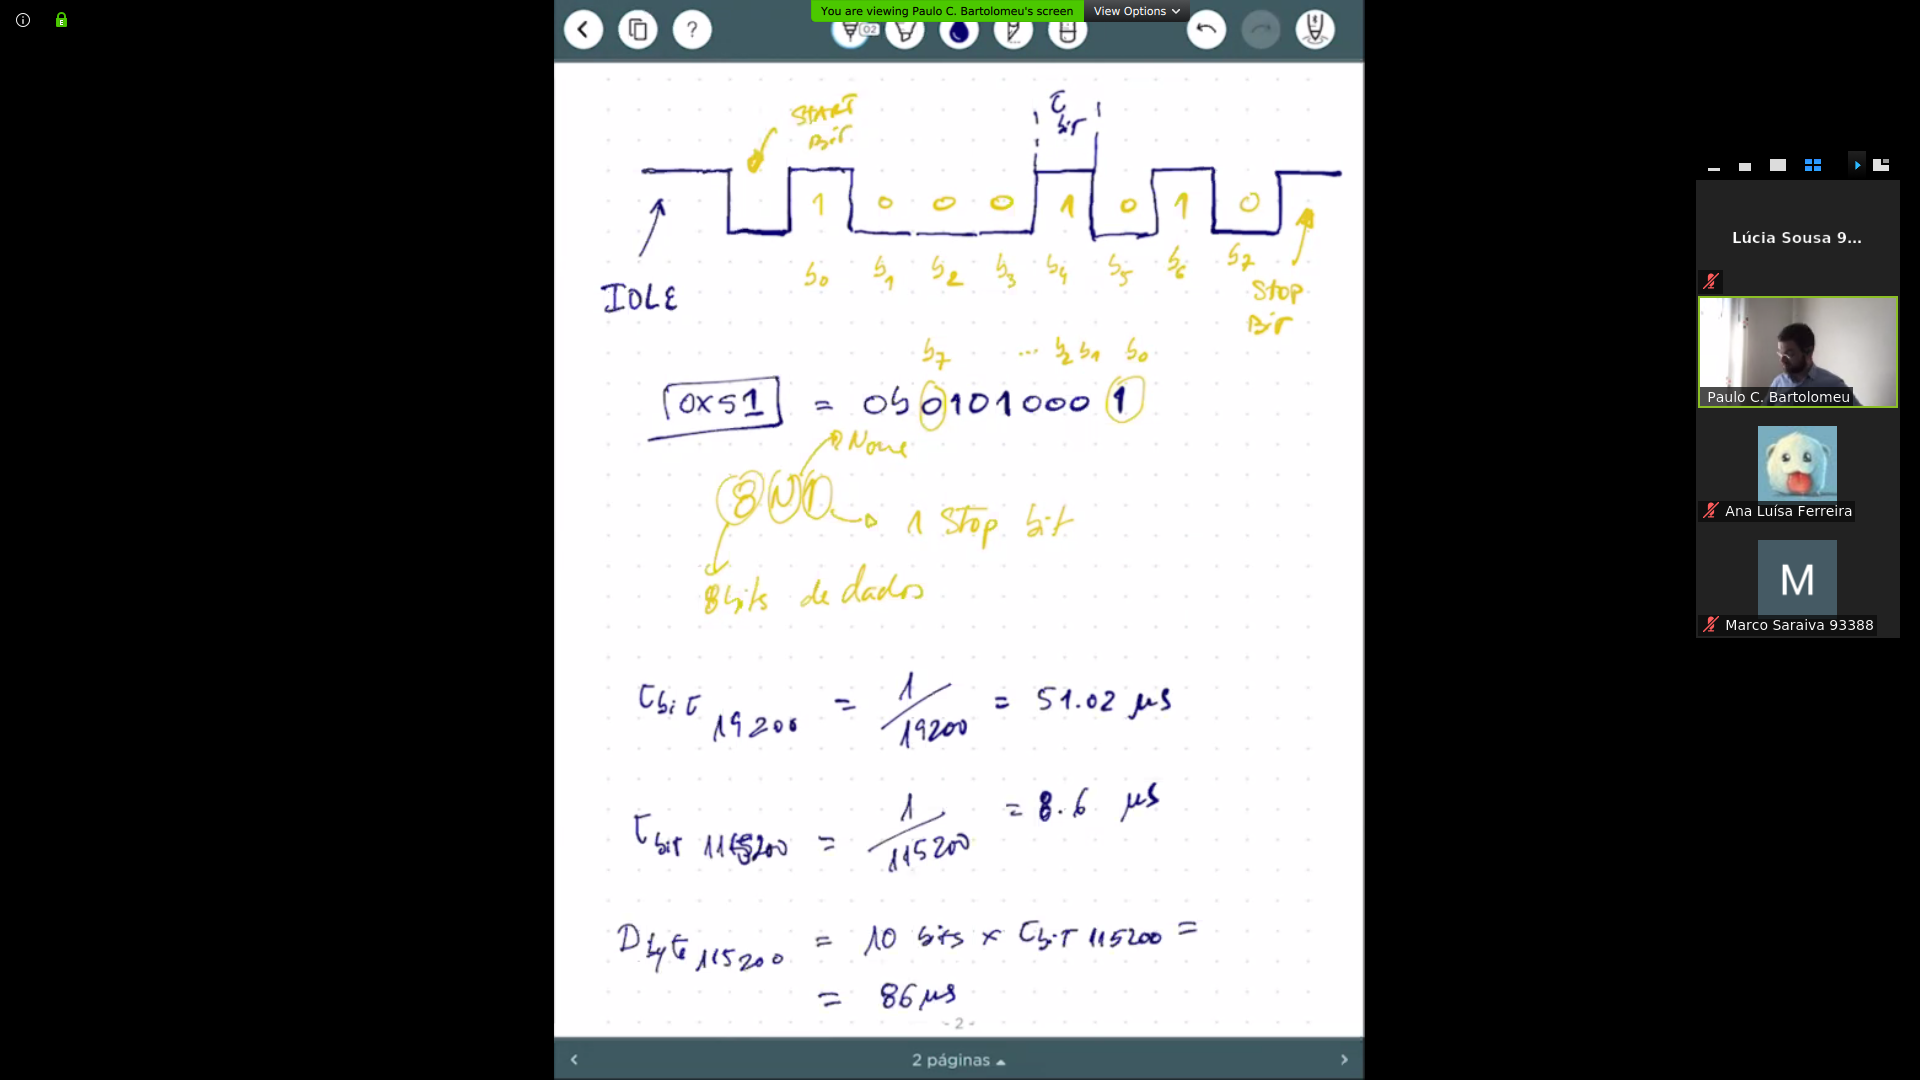 You are viewing Paulo C. Bartolomeu's screen
View Options
02
?
START
Bit
τ
bit
1 0 0 0 1 0 1 0
b0 b1 b2 b3 b4 b5 b6 b7
IDLE
Stop
Bit
b7 ... b2 b1 b0
0x51 = 0b01010001
None
8N1
1 Stop bit
8 bits de dados
τbit 19200 = 1/19200 = 51.02 μs
τbit 115200 = 1/115200 = 8.6 μs
Dbyte 115200 = 10 bits × τbit 115200 =
= 86 μs
- 2 -
2 páginas
Lúcia Sousa 9...
Paulo C. Bartolomeu
Ana Luísa Ferreira
M
Marco Saraiva 93388